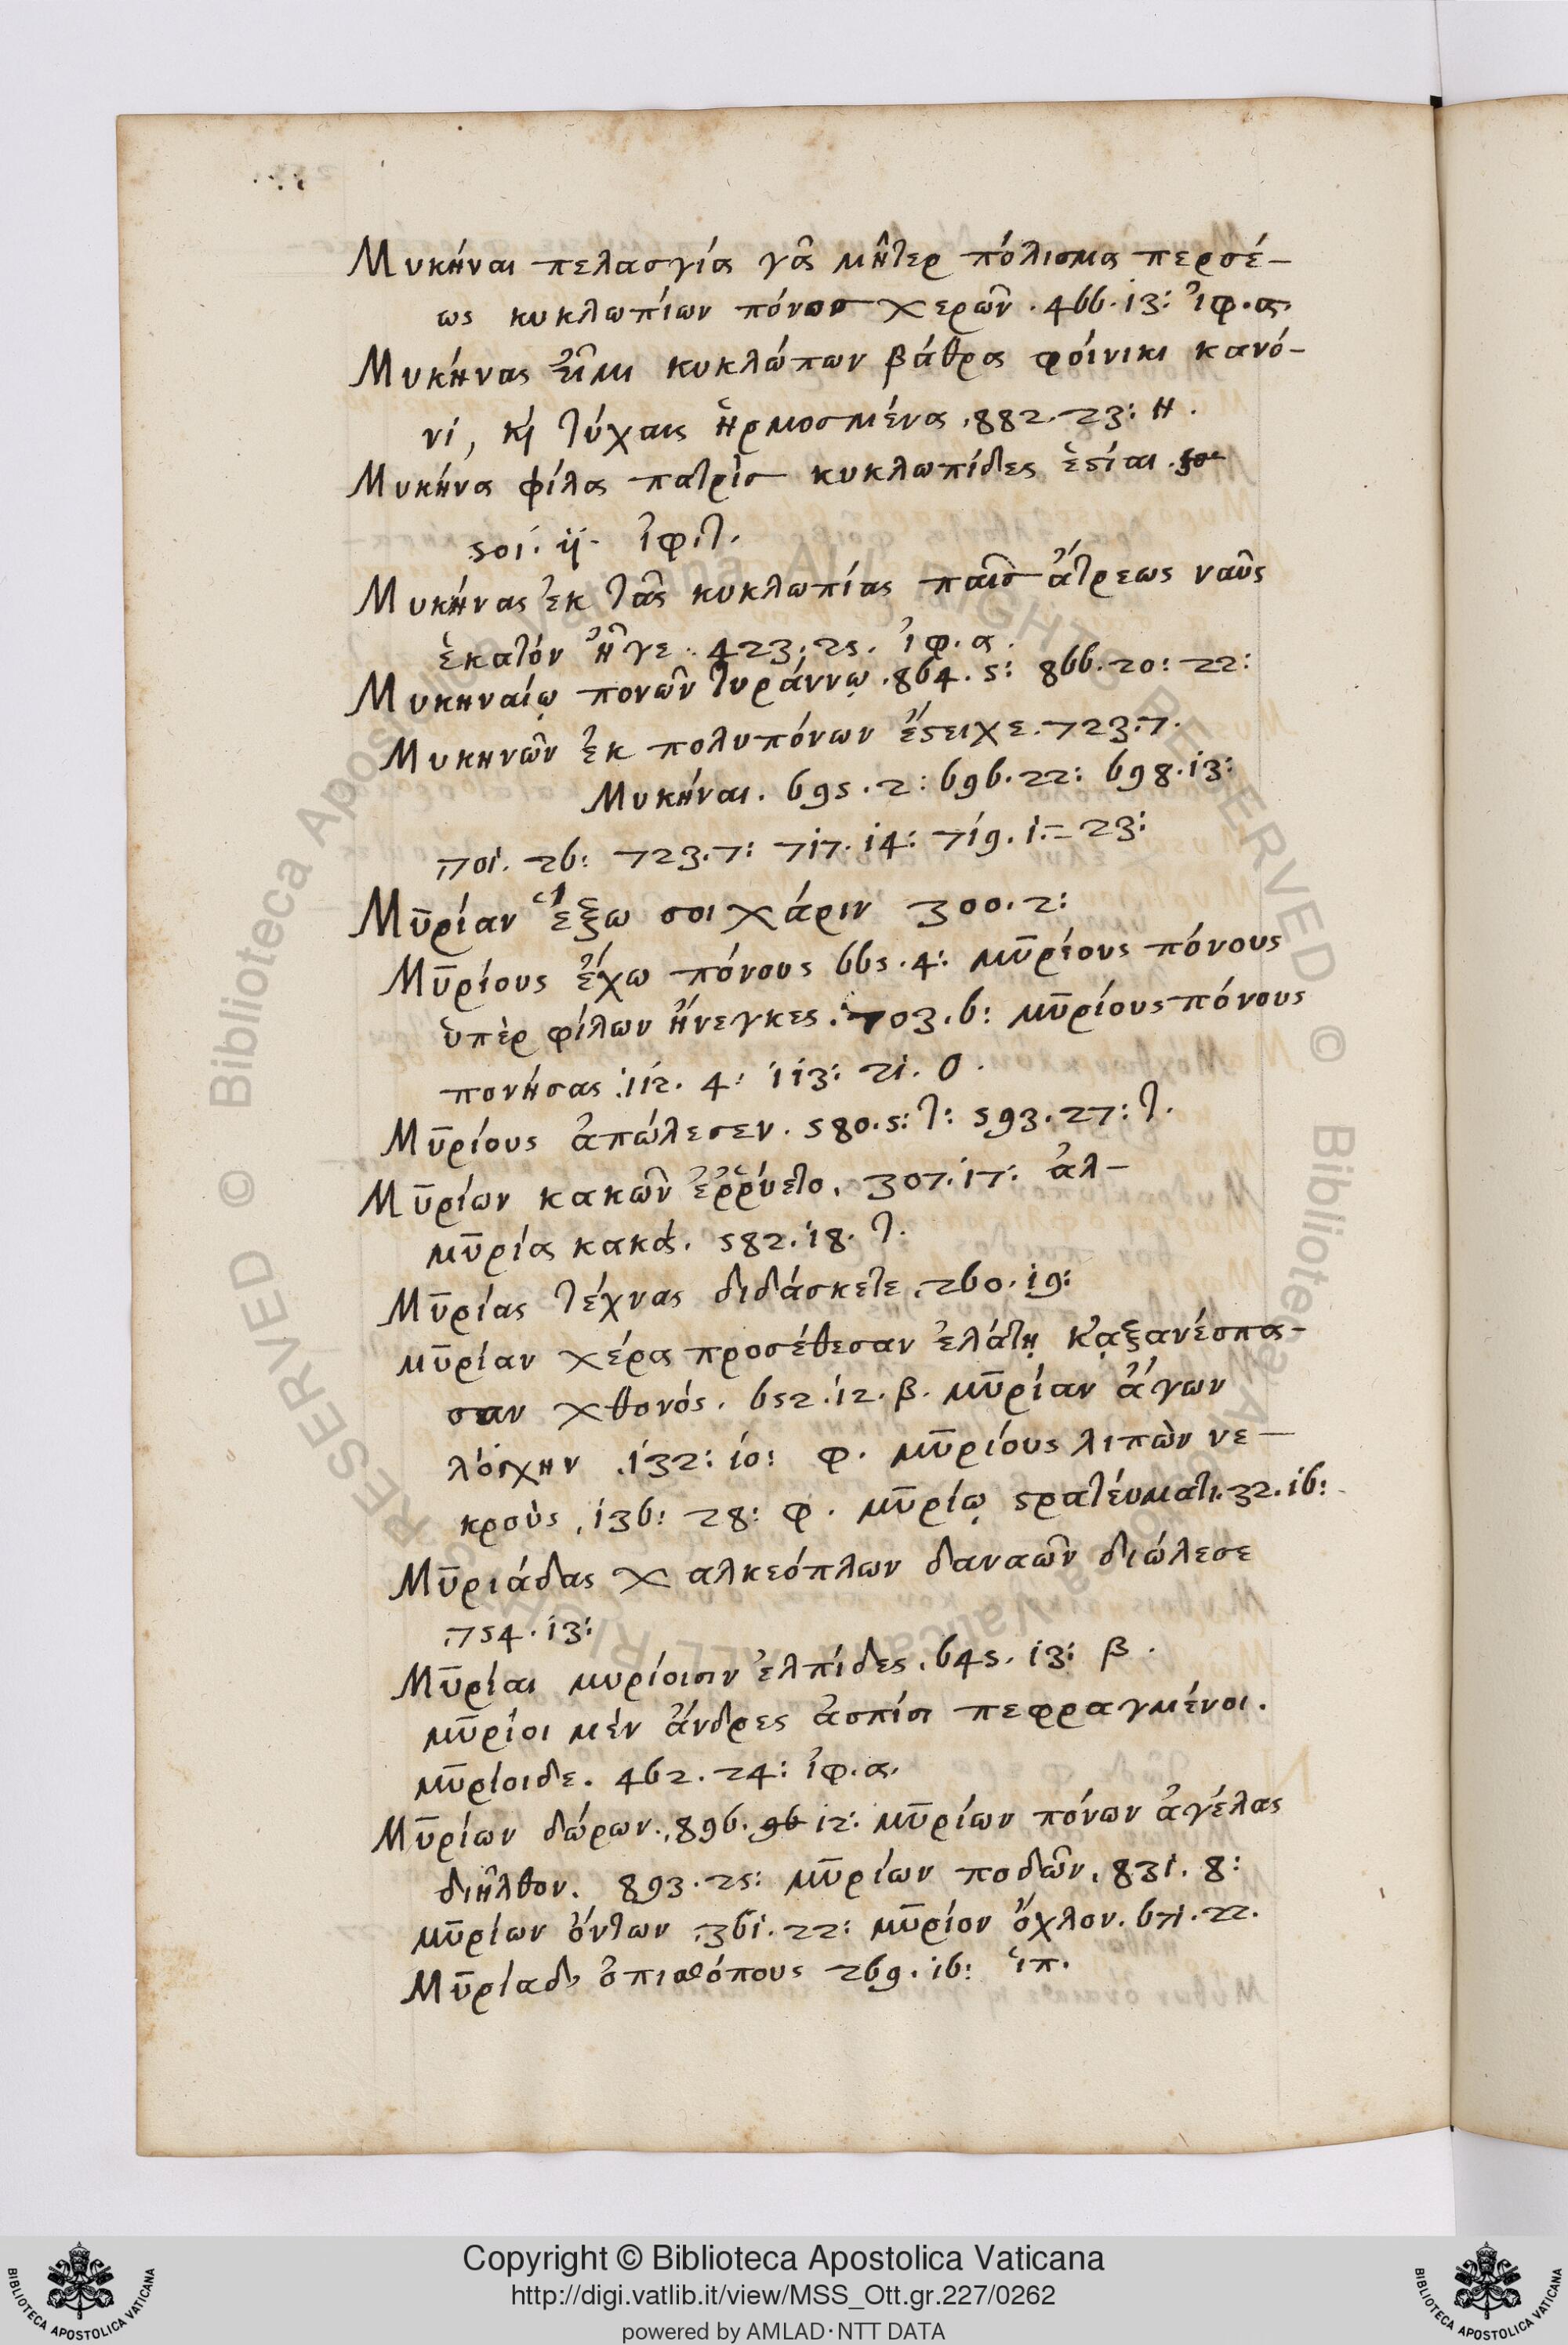 Μυκήναι πελασγία γᾶ μῆτερ πόλισμα περσέ-
ως κυκλωπίων πόνοσ χερῶν . 466.13: ἰφ.α.
Μυκήνας εἶμι κυκλώπων βάθρα φοίνικι κανό-
νί, κὶ τύχαις ἡρμοσμένα .882.23: Η.
Μυκήνα φίλα πατρὶσ κυκλωπίδες ἑστίαι .
501. 11. ἰφ.τ.
Μυκήνας ἐκ τᾶς κυκλωπίας παῖσ ἀτρεως ναῦς
ἑκατόν ἦγε . 423.25. ἰφ.α.
Μυκηναίῳ πονῶν τυράννῳ .864.5: 866.20: 22:
Μυκηνῶν ἐκ πολυπόνων ἔστειχε. 723.7.
Μυκήναι. 695.2: 696.22: 698.13:
701. 26: 723.7: 717.14: 719.1.= 23:
Μῡρίαν ἕξω σοι χάριν 300.2:
Μῡρίους ἔχω πόνους 665.4: μῡρίους πόνους
ὑπὲρ φίλων ἤνεγκες. 703.6: μῡρίους πόνους
πονήσας .112. 4: 113: 21. Ο.
Μῡρίους ἀπώλεσεν. 580.5: τ: 593.27: τ.
Μῡρίων κακῶν ἐῤῥύετο. 307.17: ἀλ-
μῡρία κακά. 582.18. τ.
Μῡρίας τέχνας διδάσκετε. 260.19:
μῡρίαν χέρα προσέθεσαν ἐλάτῃ κᾀξανέσπα-
σαν χθονός. 652.12. β. μῡρίαν ἄγων
λόγχην .132: 10: φ. μῡρίους λιπὼν νε-
κροὺς .136: 28: φ. μῡρίῳ στρατεύματι. 32.16:
Μῡριάδας χαλκεόπλων δαναῶν διώλεσε
.754.13:
Μῡρίαι μυρίοισιν ἐλπίδες. 645. 13: β.
μῡρίοι μὲν ἄνδρες ἀσπίσι πεφραγμένοι.
μῡρίοιδε. 462.24: ἰφ.α.
Μῡρίων δώρων. .896. 96 12: μῡρίων πόνων ἀγέλας
διῆλθον. 893.25: μῡρίων ποδῶν. 831. 8:
μῡρίων ὄντων .361.22: μῡρίον ὄχλον. 671.22.
Μῡρίαδ' ὀπισθόπους 269.16: ἱπ.
Copyright © Biblioteca Apostolica Vaticana
http://digi.vatlib.it/view/MSS_Ott.gr.227/0262
powered by AMLAD·NTT DATA